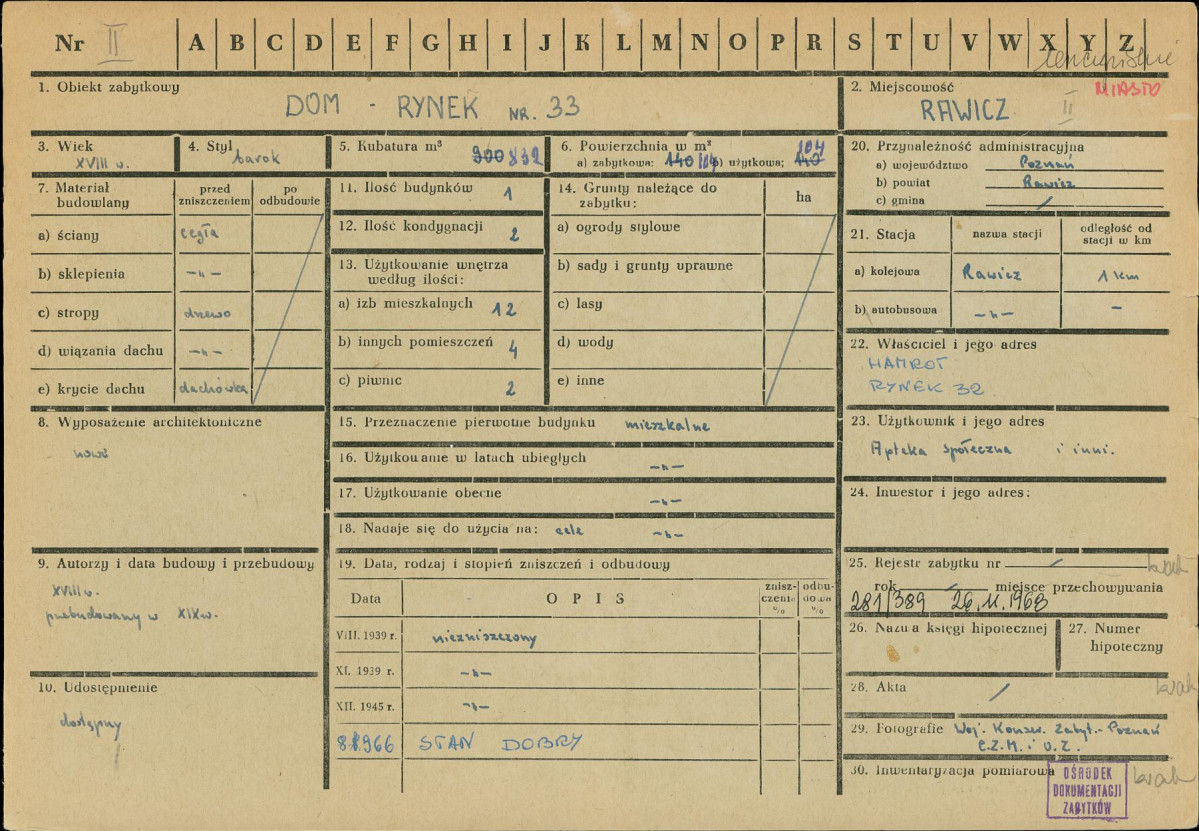 Nr II A B C D E F G H I J K L M N O P R S T U V W X Y Z
1. Obiekt zabytkowy
DOM - RYNEK NR. 33
2. Miejscowość MIASTO
RAWICZ II
3. Wiek
XVIII w.
4. Styl
barok
5. Kubatura m³
900 832
6. Powierzchnia w m²
104
a) zabytkowa: 140 104 b) użytkowa; 140
20. Przynależność administracyjna
a) województwo Poznań
b) powiat Rawicz
c) gmina /
7. Materiał budowlany
przed zniszczeniem
po odbudowie
a) ściany cegła
b) sklepienia -"-
c) stropy drzewo
d) wiązania dachu -"-
e) krycie dachu dachówka
11. Ilość budynków 1
12. Ilość kondygnacji 2
13. Użytkowanie wnętrza
według ilości:
a) izb mieszkalnych 12
b) innych pomieszczeń 4
c) piwnic 2
14. Grunty należące do
zabytku:
ha
a) ogrody stylowe
b) sady i grunty uprawne
c) lasy
d) wody
e) inne
21. Stacja nazwa stacji odległość od
stacji w km
a) kolejowa Rawicz 1 km
b) autobusowa -"- -
22. Właściciel i jego adres
HAMROT
RYNEK 32
8. Wyposażenie architektoniczne
nowe
15. Przeznaczenie pierwotne budynku mieszkalne
16. Użytkowanie w latach ubiegłych -"-
17. Użytkowanie obecne -"-
18. Nadaje się do użycia na: cele -"-
23. Użytkownik i jego adres
Apteka społeczna i inni.
24. Inwestor i jego adres:
9. Autorzy i data budowy i przebudowy
XVIII w.
przebudowany w XIX w.
10. Udostępnienie
dostępny
19. Data, rodzaj i stopień zniszczeń i odbudowy
Data OPIS znisz-
czenia
% odbu-
dowa
%
VIII. 1939 r. niezniszczony
XI. 1939 r. -"-
XII. 1945 r. -"-
1966 STAN DOBRY
25. Rejestr zabytku nr / brak
rok miejsce przechowywania
281/389 26.11.1968
26. Nazwa księgi hipotecznej
27. Numer
hipoteczny
28. Akta / brak
29. Fotografie Woj. Konserw. Zabyt.- Poznań
C.Z.M. i O.Z.
30. Inwentaryzacja pomiarowa brak
OŚRODEK
DOKUMENTACJI
ZABYTKÓW